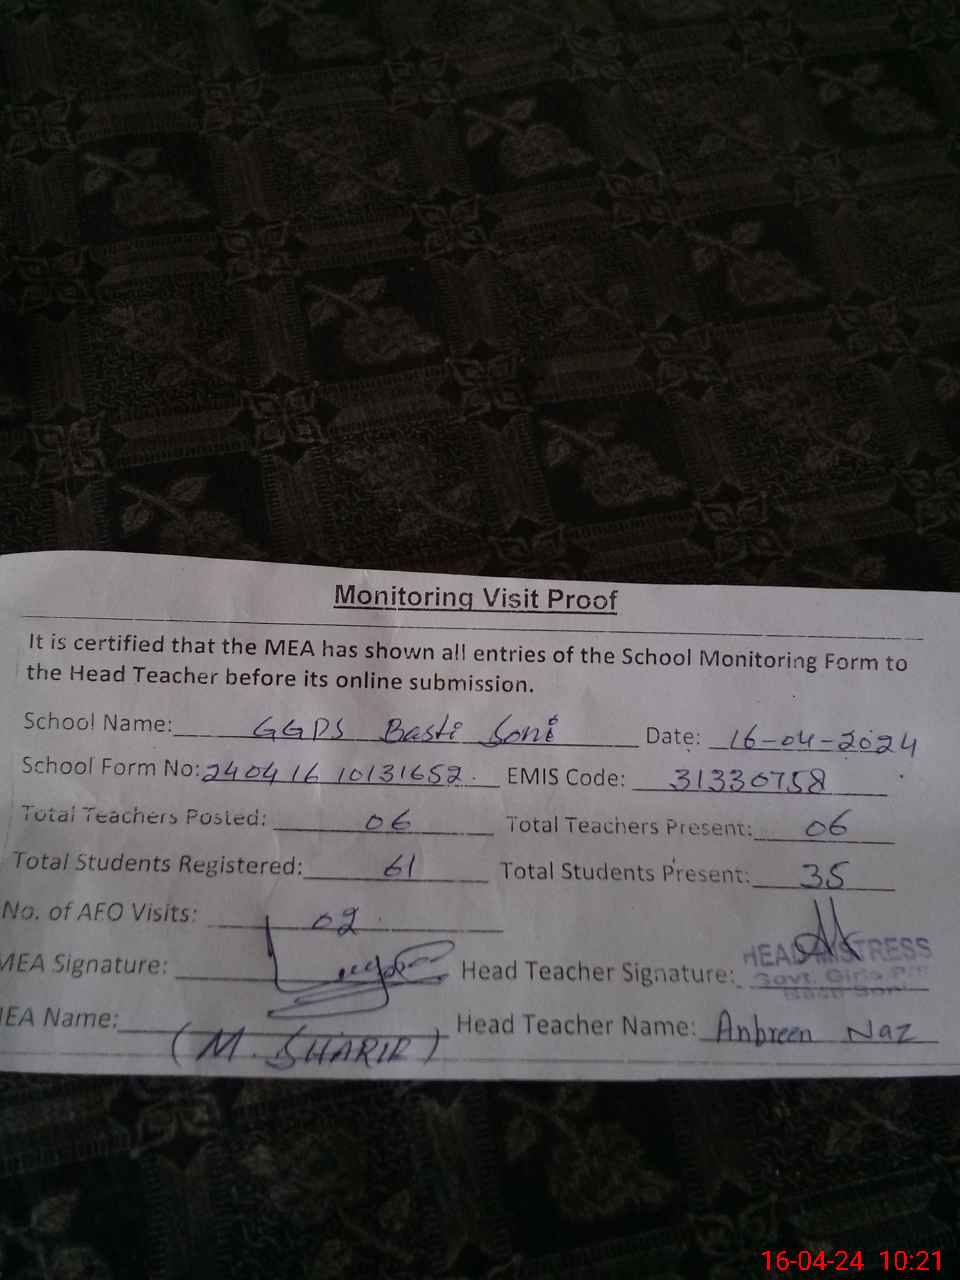 Monitoring Visit Proof
It is certified that the MEA has shown all entries of the School Monitoring Form to
the Head Teacher before its online submission.
School Name: GGPS Basti Soni Date: 16-04-2024
School Form No: 240416 10131652. EMIS Code: 31330758
Total Teachers Posted: 06 Total Teachers Present: 06
Total Students Registered: 61 Total Students Present: 35
No. of AEO Visits: 02
MEA Signature: Head Teacher Signature: HEADMISTRESS
Govt. Girls P/
Basti Soni
MEA Name: (M. SHARIF) Head Teacher Name: Anbreen Naz
16-04-24 10:21